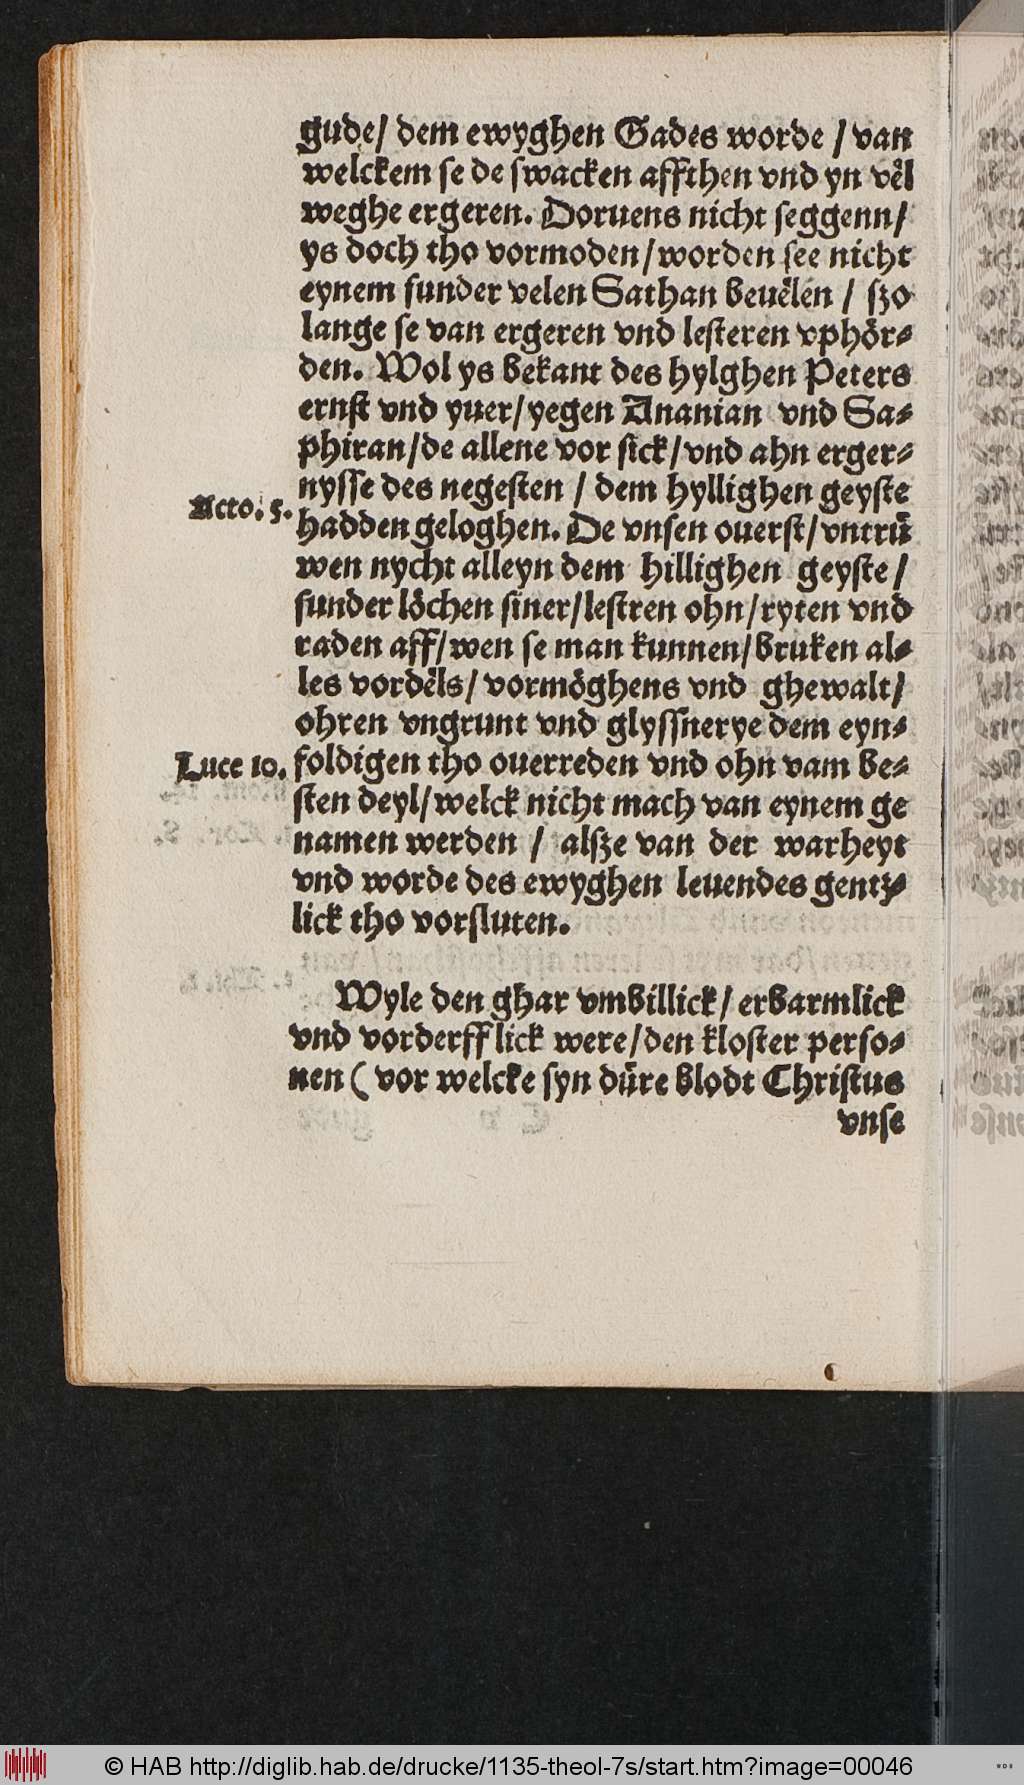 gude/ dem ewyghen Gades worde / van
welckem se de swacken affthen vnd yn vël
weghe ergeren. Doruens nicht seggenn/
ys doch tho vormoden/worden see nicht
eynem sunder velen Sathan beuëlen / szo
lange se van ergeren vnd lesteren vphör-
den. Wol ys bekant des hylghen Peters
ernst vnd yuer/yegen Ananian vnd Sa-
phiran/de allene vor sick/vnd ahn erger-
nysse des negesten / dem hyllighen geyste
Acto. 5.
hadden geloghen. De vnsen ouerst/vntrü
wen nycht alleyn dem hillighen geyste/
sunder löchen siner/lestren ohn/ryten vnd
raden aff/wen se man kunnen/bruken al-
les vordëls/ vormöghens vnd ghewalt/
ohren vngrunt vnd glyssnerye dem eyn-
Luce 10.
foldigen tho ouerreden vnd ohn vam be-
sten deyl/welck nicht mach van eynem ge
namen werden / alsze van der warheyt
vnd worde des ewyghen leuendes gentz-
lick tho vorsluten.
Wyle den ghar vmbillick/ erbarmlick
vnd vorderfflick were/den kloster perso-
nen ( vor welcke syn düre blodt Christus
vnse
© HAB http://diglib.hab.de/drucke/1135-theol-7s/start.htm?image=00046